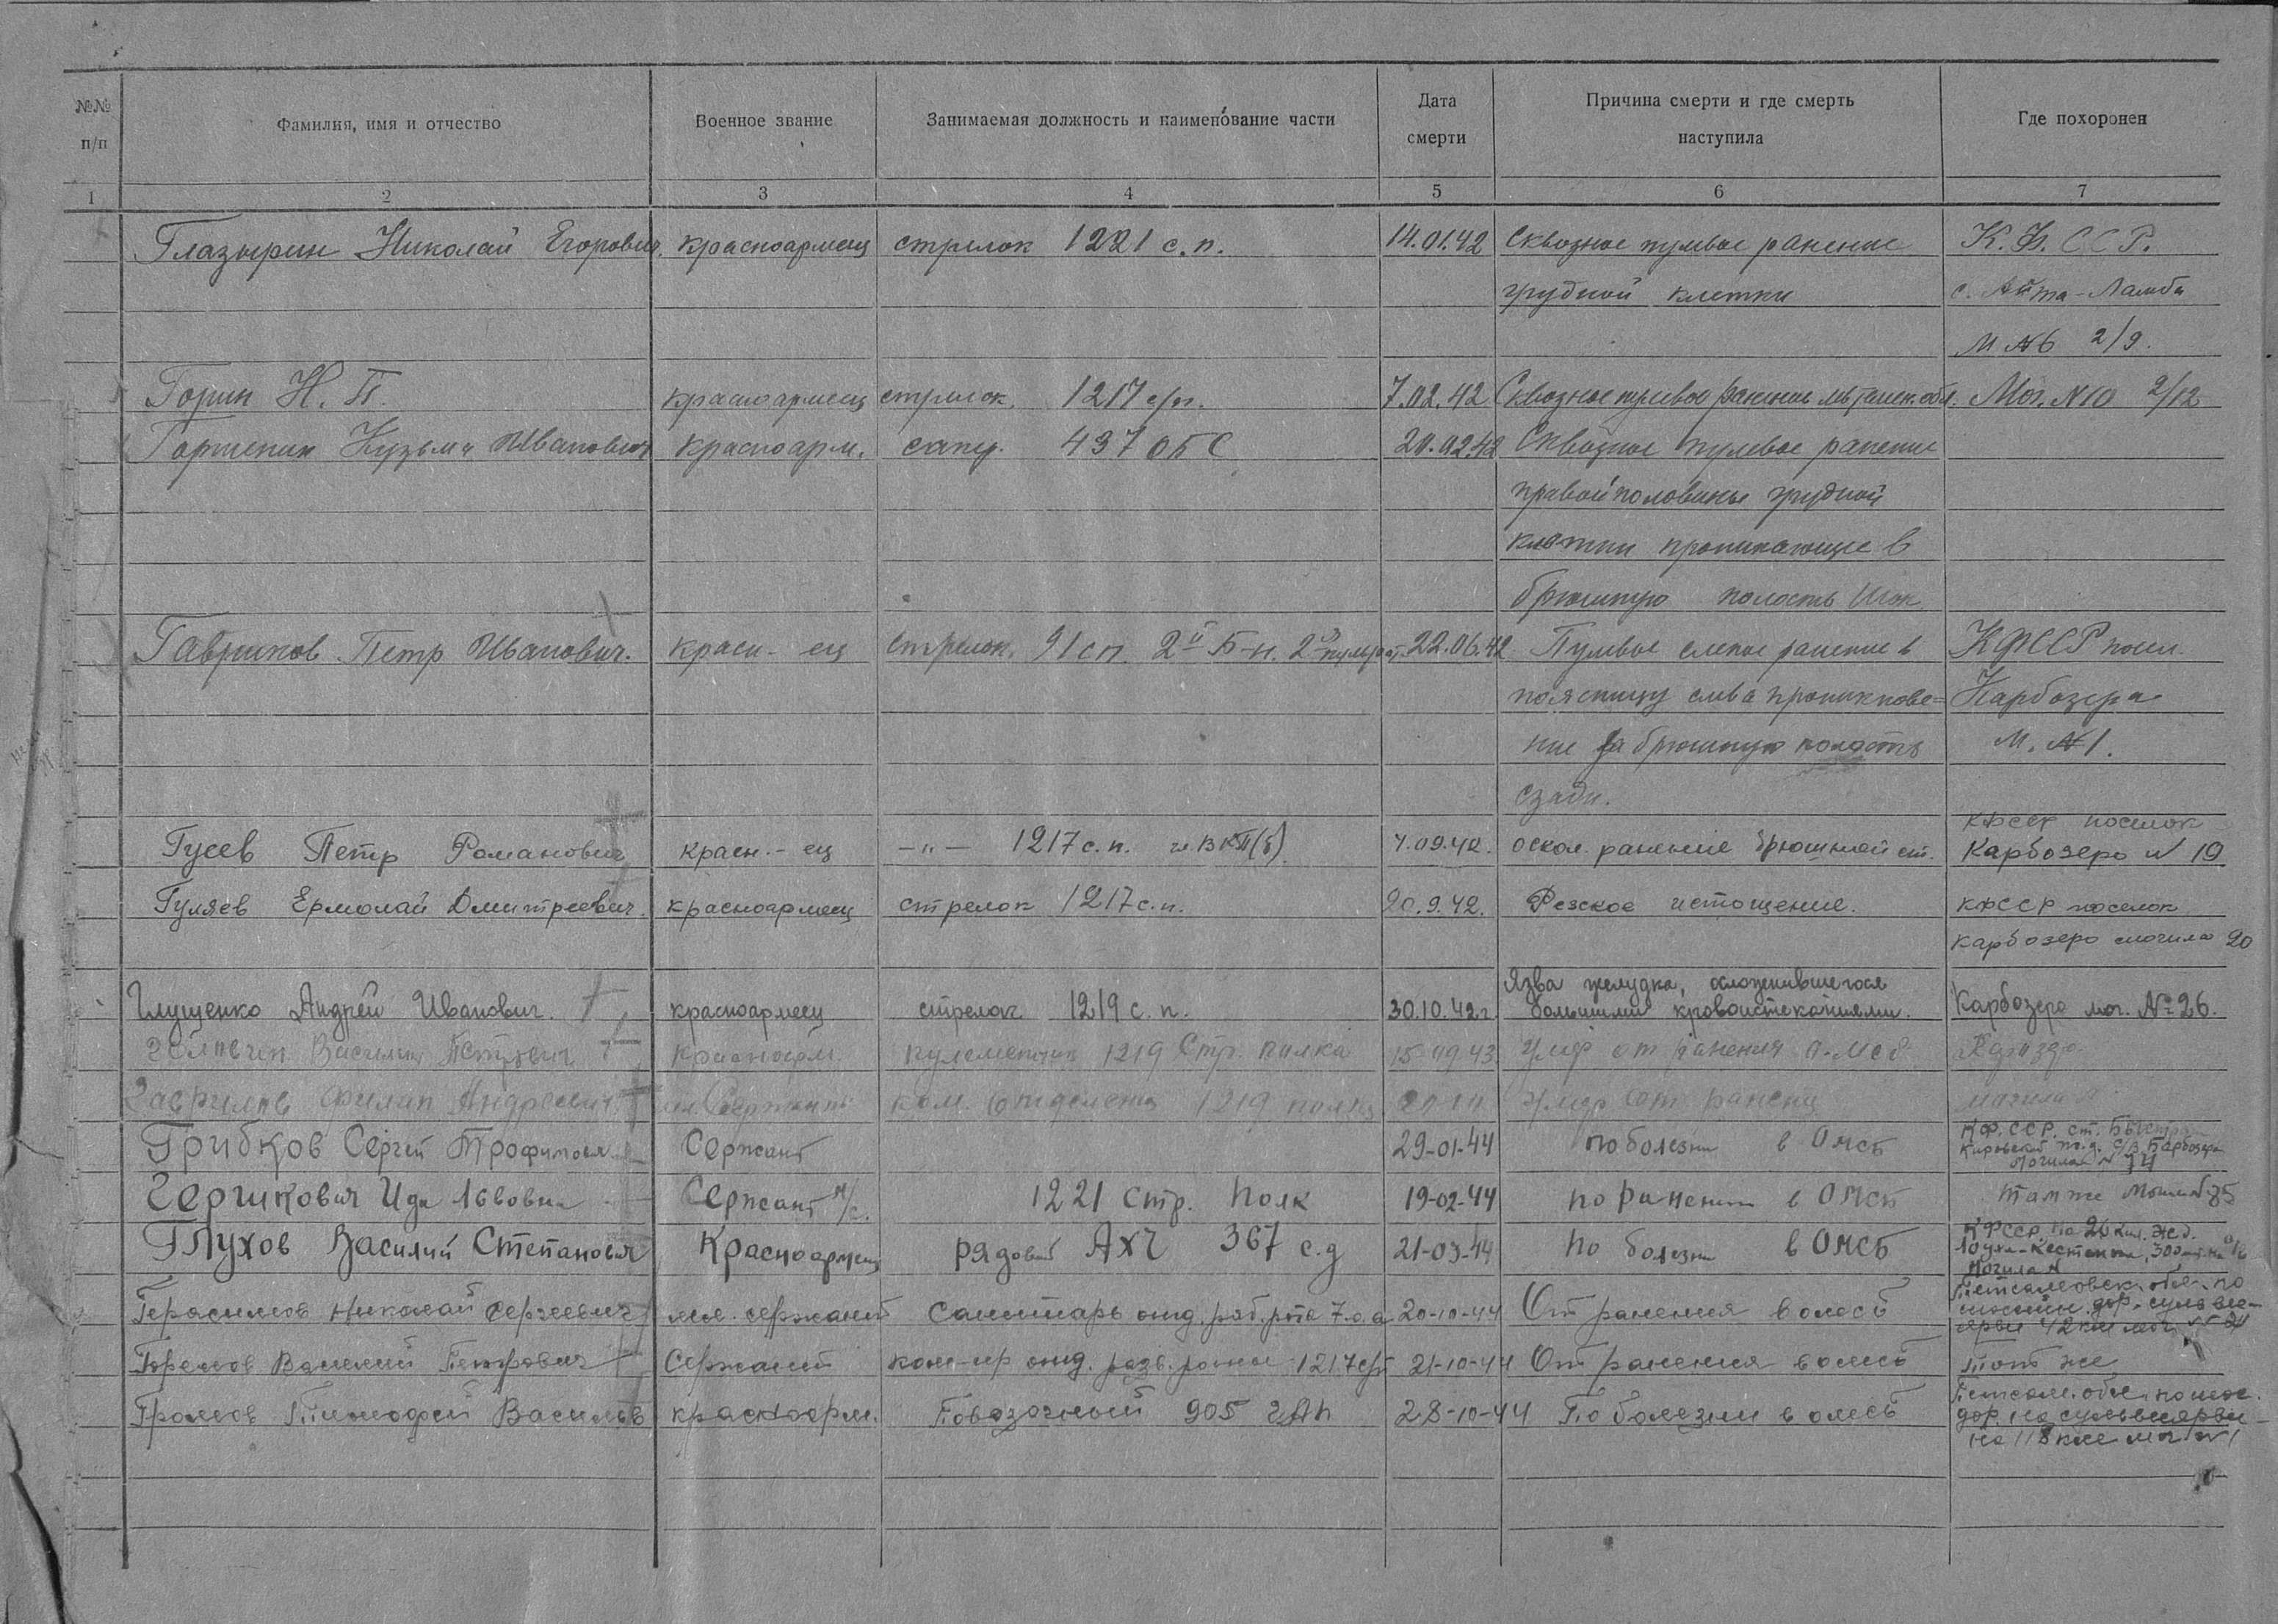 №№ п/п
Фамилия, имя и отчество
Военное звание
Занимаемая должность и наименование части
Дата смерти
Причина смерти и где смерть наступила
Где похоронен
1 2 3 4 5 6 7
Глазырин Николай Егорович. красноармеец стрелок 1221 с.п. 14.01.42 Сквозное пулевое ранение К.Ф.ССР.
грудной клетки с. -Ламби
М №6 2/9.
Горин Н. П. красноармеец стрелок. 1217 с/п. 7.02.42 Сквозное пулевое ранение Мог. №10 2/12
Кузьма Иванович красноарм. сапер. 437 ОБС 20.02.42 Сквозное пулевое ранение
правой половины грудной
клетки проникающие в
брюшную полость Шок
Гавриков Петр Иванович. красн-ец стрелок. 91 сп. 2й Б-н. 22.06.42 Пулевое слепое ранение в КФССР посел.
поясницу слева проникнове=
ние за брюшную полость
сзади.
Карбозера
М. №1.
Гусев Петр Романович красн.-ец —„— 1217 с.п. чл. ВКП(б) 7.09.42. оскол. ранение брюшной ст. КФССР поселок
Карбозеро № 19
Гуляев Ермолай Дмитреевич. красноармеец стрелок 1217 с.п. 20.9.42. Резское истощение. КФССР поселок
Карбозеро могила 20
Глущенко Андрей Иванович. красноармеец стрелок 1219 с.п. 30.10.42 г. Язва желудка, осложнившегося
большими кровоистеканиями. Карбозеро мог. № 26.
Василий Петрович красноарм. пулеметчик 1219 Стр. полка 15 09 43 умер от ранения
Гаврилов Филип Андреевич мл Сержант ком. отделения 1219 полка умер от ранения могила
Грибков Сергей Трофимович Сержант 29-01-44 по болезни в ОМСБ КФ.ССР. ст.
Кировской ж.д.
могила № 74
Герчикович Ида Львовна Сержант м/с. 1221 Стр. Полк 19-02-44 по ранению в ОМСБ там же могила 85
Глухов Василий Степанович Красноармеец рядовой АХЧ 367 с.д 21-03-44 по болезни в ОМСБ КФССР. на 26 км. ж.д.
Лоухи-Кестеньга, 300 мт. на
Могила №
Герасимов Николай Сергеевич мл. сержант Санитарь отд. 20-10-44 От ранения в омсб по
дор.
42 км мог №
Василий Петрович Сержант ком-ир отд. разв. 1217 с/п 21-10-44 От ранения в омсб Тоб же
Громов Тимофей Васильев красноарм. Повозочный 905 гап 28-10-44 По болезни в омсб
дор. на
на 118 км мог №1